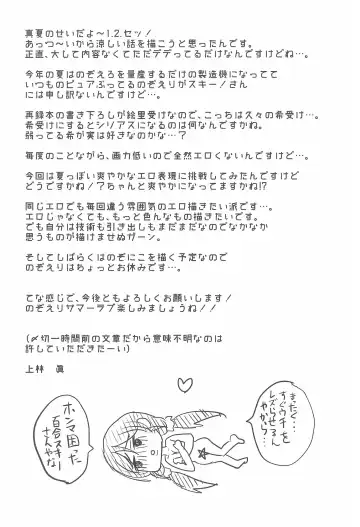 真夏のせいだよ～1.2.セッ！
あっつ～いから涼しい話を描こうと思ったんです。
正直、大して内容なくてただデデってるだけなんですけどね…。
今年の夏はのぞえろを量産するだけの製造機になってて
いつものピュアぶってるのぞえりがスキーノさん
には申し訳ないんですけど…。
再録本の書き下ろしが絵里受けなので、こっちは久々の希受け…。
希受けにするとシリアスになるのは何なんですかね。
弱ってる希が実は好きなのかな…？
毎度のことながら、画力低いので全然エロくないんですけど…。
今回は夏っぽい爽やかなエロ表現に挑戦してみたんですけど
どうですかね！？ちゃんと爽やかになってますかね!?
同じエロでも毎回違う雰囲気のエロ描きたい派です…。
エロじゃなくても、もっと色んなもの描きたいです。
でも自分は技術も引き出しもまだまだなのでなかなか
思うものが描けませぬガーン。
そしてしばらくはのぞにこを描く予定なので
のぞえりはちょっとお休みです…。
てな感じで、今後ともよろしくお願いします！
のぞえりサマーラブ楽しみましょうノノ
(〆切一時間前の文章だから意味不明なのは
許していただきたーい)
上林 眞
まったく…
すぐウチを
レズらせるん
やから…
ホンマ困った
百合スキー
さんやな